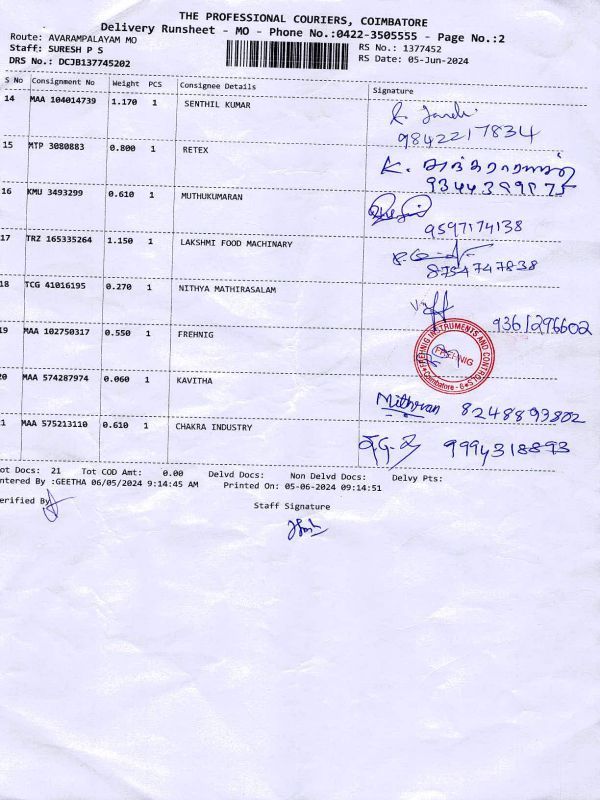 THE PROFESSIONAL COURIERS, COIMBATORE
Delivery Runsheet - MO - Phone No.:0422-3505555 - Page No.:2
Route: AVARAMPALAYAM MO
RS No.: 1377452
Staff: SURESH P S
RS Date: 05-Jun-2024
DRS No.: DCJB137745202
S No Consignment No Weight PCS Consignee Details Signature
14 MAA 104014739 1.170 1 SENTHIL KUMAR
9842217834
15 MTP 3080883 0.800 1 RETEX
K.
16 KMU 3493299 0.610 1 MUTHUKUMARAN
9597174138
17 TRZ 165335264 1.150 1 LAKSHMI FOOD MACHINARY
8754747838
18 TCG 41016195 0.270 1 NITHYA MATHIRASALAM
9361296602
19 MAA 102750317 0.550 1 FREHNIG
FREHNIG INSTRUMENTS AND CONTROLS
FREHNIG
Coimbatore - 6
20 MAA 574287974 0.060 1 KAVITHA
Mithran 8248893802
1 MAA 575213110 0.610 1 CHAKRA INDUSTRY
9994318893
ot Docs: 21 Tot COD Amt: 0.00 Delvd Docs: Non Delvd Docs: Delvy Pts:
ntered By :GEETHA 06/05/2024 9:14:45 AM Printed On: 05-06-2024 09:14:51
erified By
Staff Signature